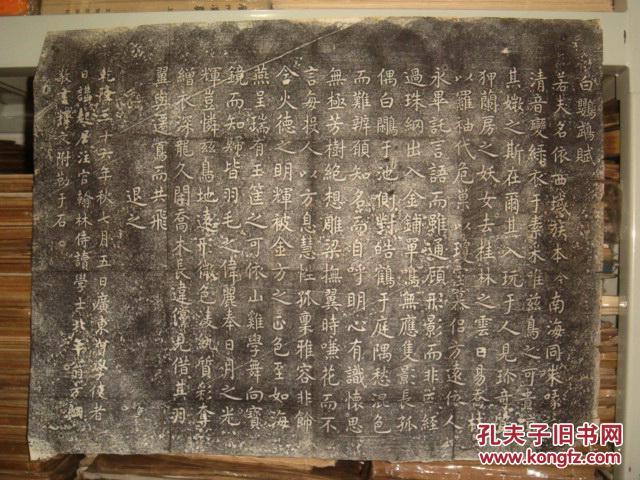 白鸚鵡賦
若夫名依西域族本今南海同朱喙之
清音變綠衣于素采惟茲鳥之可貴諒
其嫩之斯在爾其入玩于人見珍奇質
狎蘭房之妖女去桂林之雲日易喬枝
以羅袖代危巢以瓊室慕侶方遠依人
永畢託言語而雖通顧形影而非匹經
過珠納出入金鋪單鳴無應隻影長孤
偶白鷴于池側對皓鶴于庭隅愁混色
而難辨願知名而自呼明心有識懷思
無極芳樹絕想雕梁撫翼時嗛花而不
言每投人以方息慧性孤稟雅容非飾
含火德之明輝被金方之正色至如海
燕呈瑞有玉筐之可依山雞學舞向寶
鏡而知歸皆羽毛之偉麗奉日月之光
輝豈憐茲鳥地遠形微色凌紈質彩奪
繒衣深龍久閉喬木長違儻見借其羽
翼與遷鶯而共飛
退之
乾隆三十六年秋七月五日廣東督學使者
日講起居注官翰林侍讀學士北平翁方綱
敬書釋文附勒于石
孔夫子旧书网
www.kongfz.com